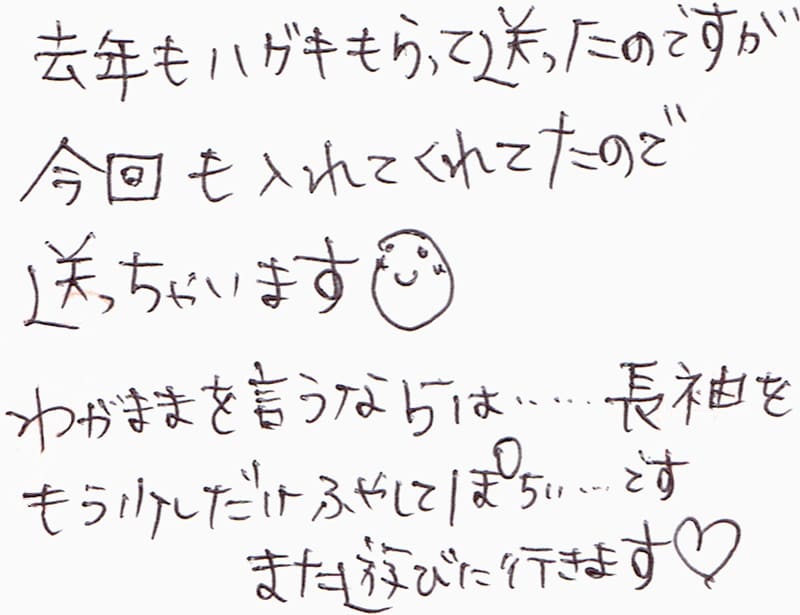 去年もハガキもらって送ったのですが
今回も入れてくれてたので
送っちゃいます
わがままを言うならば……長袖を
もう少しだけふやしてほちい…です
また遊びに行きます♡